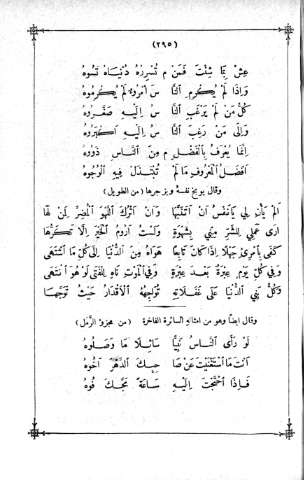 (٢٩٥)
عِشْ بِمَا شِئْتَ فَمَنْ م تَسْرُرْهُ دُنْيَاهُ تَسُوهُ
وَإِذَا لَمْ يُكْرِمِ ٱلنَّا سَ ٱمْرُؤٌ لَمْ يُكْرِمُوهُ
كُلُّ مَنْ لَمْ يَرْغَبِ ٱلنَّا سُ إِلَيْهِ صَغَّرُوهُ
وَإِلَى مَنْ رَغِبَ ٱلنَّا سُ إِلَيْهِ أَكْبَرُوهُ
إِنَّمَا يَعْرِفُ بِٱلْفَضْلِ م مِنَ ٱلنَّاسِ ذَوُوهُ
أَفْضَلُ ٱلْمَعْرُوفِ مَا لَمْ تُبْتَذَلْ فِيهِ ٱلْوُجُوهُ
وقال يوبخ نفسهُ ويزجرها (من الطويل)
أَلَمْ يَأْنِ لِي يَا نَفْسُ أَنْ أَتَنَبَّهَا وَأَنْ أَتْرُكَ ٱللَّهْوَ ٱلْمُضِرَّ لِمَنْ لَهَا
أَرَى عَمَلِي لِلشَّرِّ مِنِّي بِشَهْوَةٍ وَلَسْتُ أَرُومُ ٱلْخَيْرَ إِلَّا تَكَرُّهَا
كَفَى بِٱمْرِئٍ جَهْلًا إِذَا كَانَ تَابِعًا هَوَاهُ مِنَ ٱلدُّنْيَا إِلَى كُلِّ مَا ٱشْتَهَى
وَفِي كُلِّ يَوْمٍ عِبْرَةٌ بَعْدَ عِبْرَةٍ وَفِي ٱلْمَوْتِ نَاهٍ لِلْفَتَى لَوْ هُوَ ٱنْتَهَى
وَكُلُّ بَنِي ٱلدُّنْيَا عَلَى غَفَلَاتِهِ تُوَاجِهُهُ ٱلْأَقْدَارُ حَيْثُ تَوَجَّهَا
وقال ايضاً وهو من امثاله السائرة الفاخرة (من مجزوّ الرمل)
لَوْ رَأَى ٱلنَّاسُ نَبِيًّا سَائِلًا مَا وَصَلُوهُ
أَنْتَ مَا ٱسْتَغْنَيْتَ عَنْ صَا حِبِكَ ٱلدَّهْرَ أَخُوهُ
فَإِذَا ٱحْتَجْتَ إِلَيْهِ سَاعَةً مَجَّكَ فُوهُ